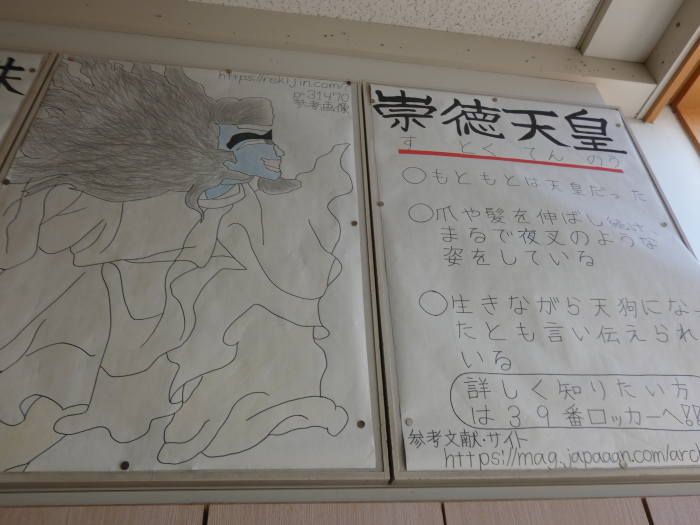 https://rekijin.com/?
p=31470
参考画像
崇徳天皇
すとくてんのう
○もともとは天皇だった
○爪や髪を伸ばし続け、
まるで夜叉のような
姿をしている
○生きながら天狗になっ
たとも言い伝えられ
いる
詳しく知りたい方
は39番ロッカーへ!!
参考文献・サイト
https://mag.japaaan.com/arc